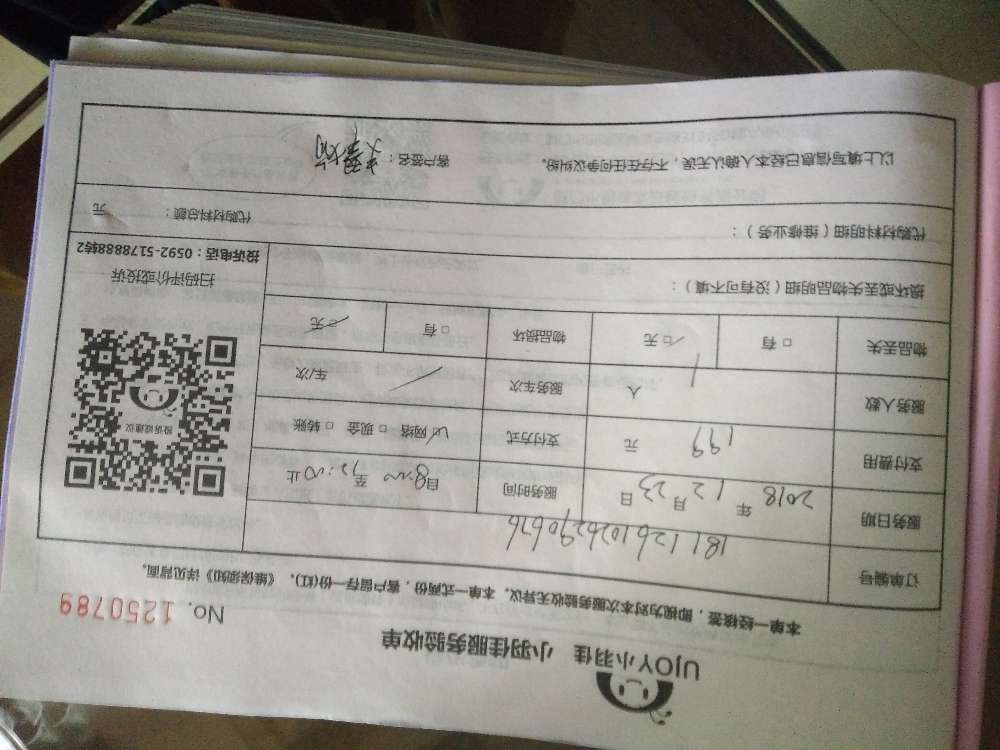 UJOY小羽佳 小羽佳服务验收单
No. 1250789
本单一经核签，即视为对本次服务验收无异议。本单一式两份，客户留存一份(红)，《维保须知》详见背面。
订单编号 181126102629067676
服务日期 2018 年 12 月 23 日 服务时间 自8:00 至12:00止
支付费用 199 元 支付方式 ☑网络 □ 现金 □ 转账
服务人数 1 人 服务车次 / 车/次
物品丢失 □ 有 ☑无 物品损坏 □ 有 ☑无
投诉或建议
扫码评价或投诉
投诉电话：0592-5178888转2
损坏或丢失物品明细（没有可不填）：
代购材料明细（维修业务）： 代购材料总额： 元
以上填写信息已经本人确认无误，不存在任何争议纠纷。 客户签名：